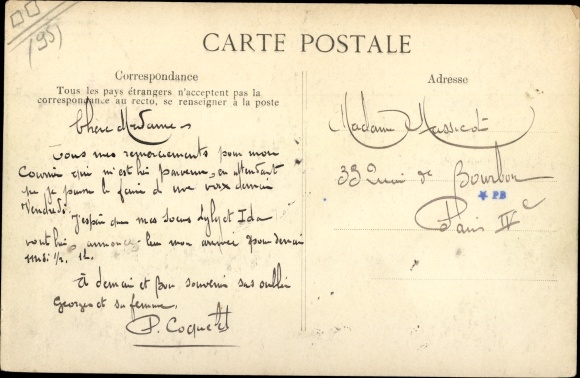 (95)
CARTE POSTALE
Correspondance
Tous les pays étrangers n'acceptent pas la
correspondance au recto, se renseigner à la poste
Adresse
Chère Madame
Tous mes remerciements pour mon
qui m'est bien parvenu, en attendant
que je puisse le faire de vive voix demain
Vendredi.
J'espère que mes soeurs Lyly et Ida
vont bien, annoncez-leur mon arrivée pour demain
midi 1/2.
À demain et Bon souvenir sans oublier
Georges et sa femme.
P. Coquelet
Madame Massicot
33 Quai de Bourbon
PB
Paris IVe